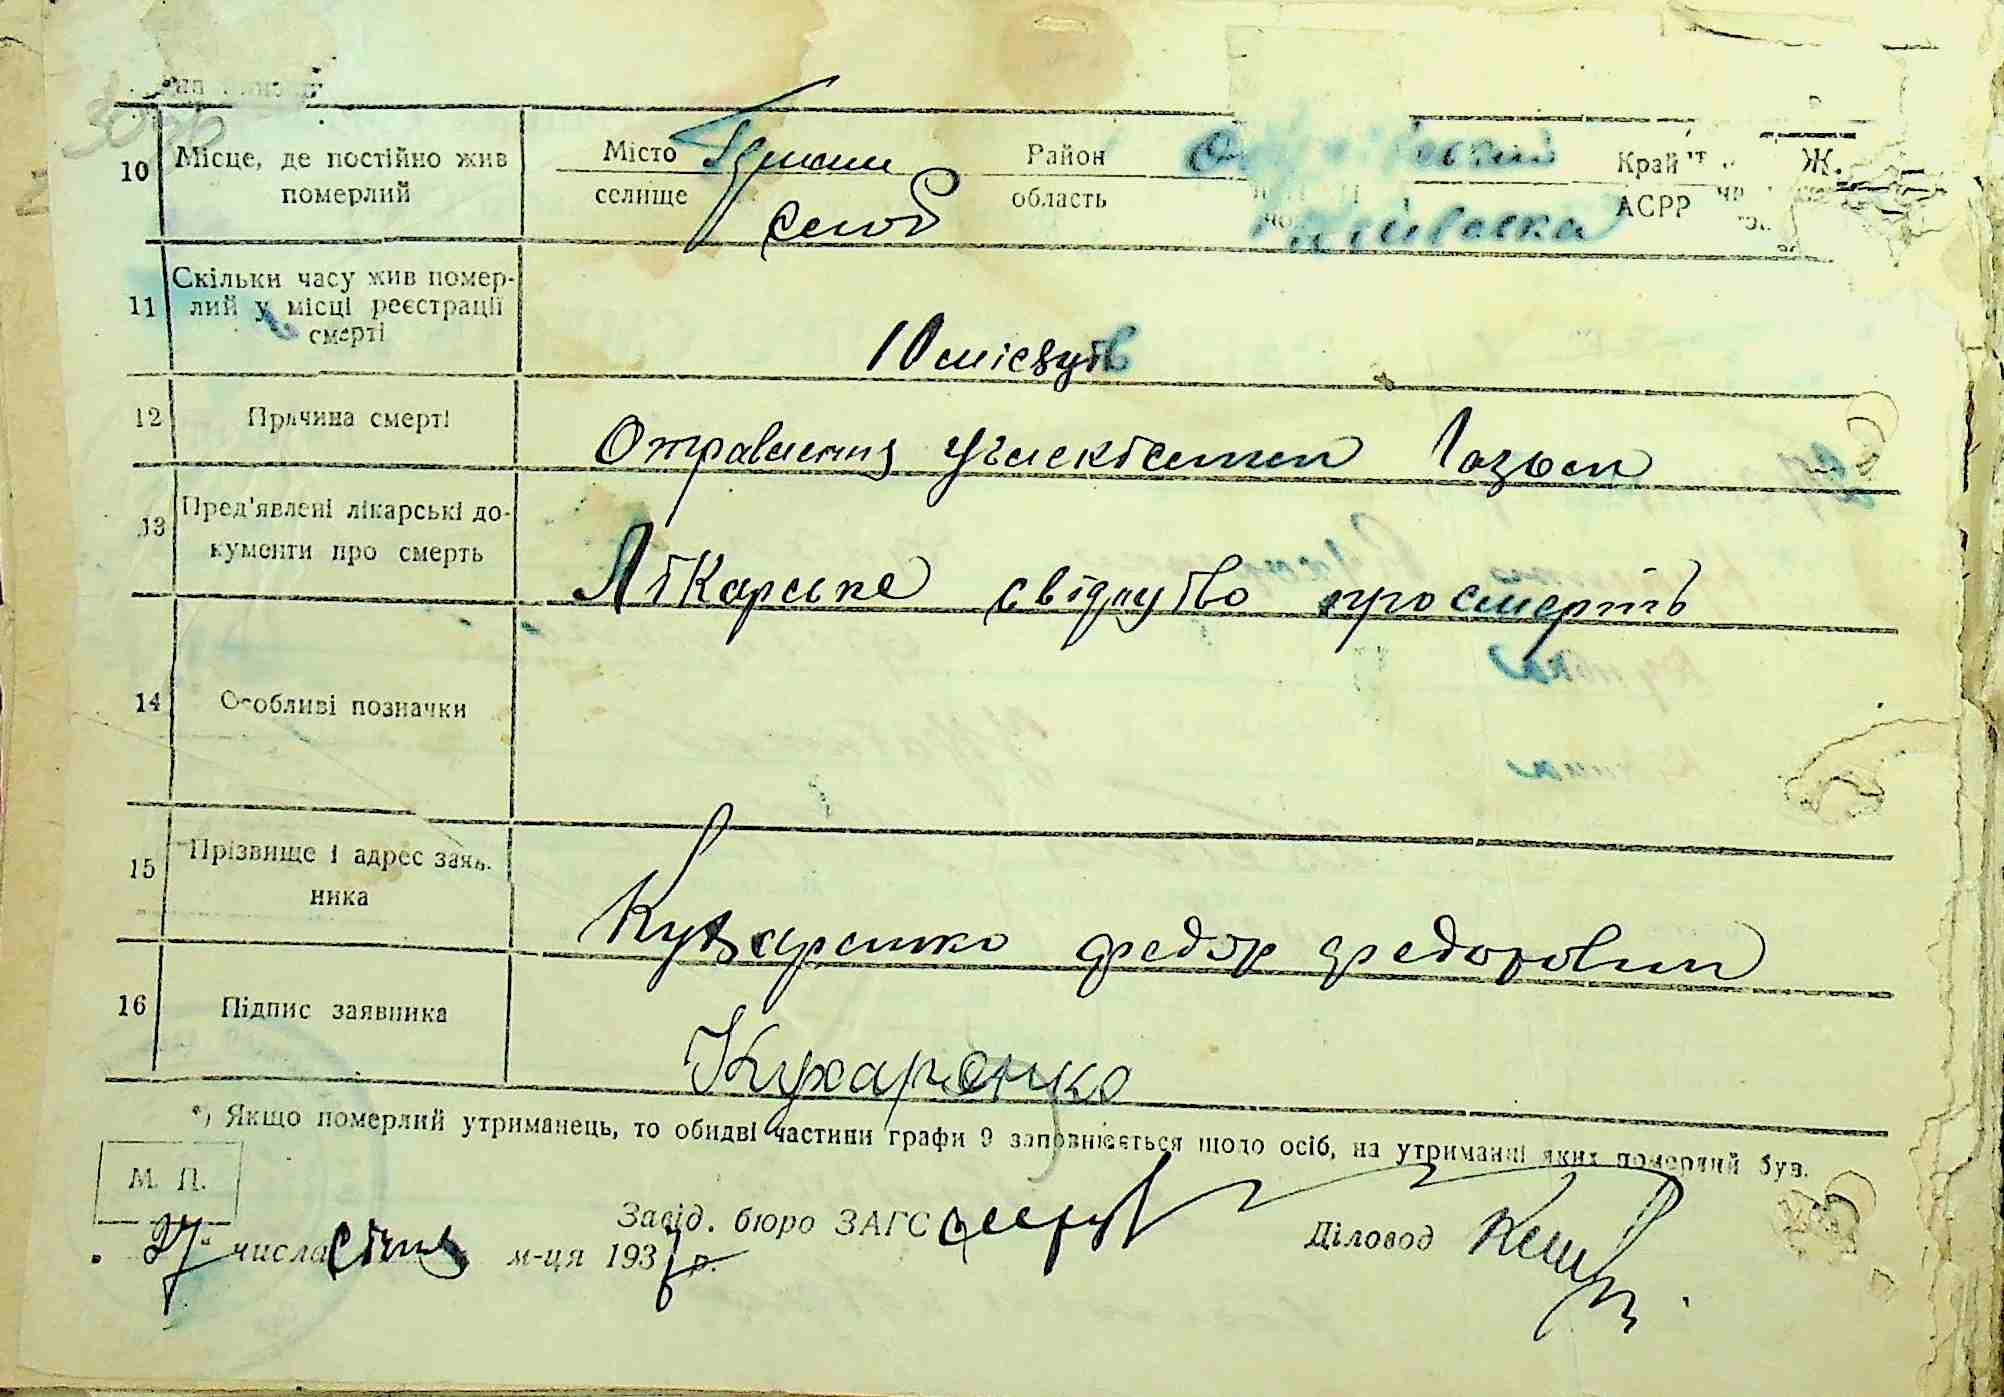 10 Місце, де постійно жив померлий
Місто селище
село
Район область
Край АСРР
Ж.
11 Скільки часу жив помер-
лий у місці реєстрації
смерті
10 місяців
12 Причина смерті
Отравления газом
13 Пред'явлені лікарські до-
кументи про смерть
Лікарське свідоцтво про смерть
14 Особливі позначки
15 Прізвище і адрес заяв-
ника
Кухаренко Федор Федорович
16 Підпис заявника
Кухаренко
*) Якщо померлий утриманець, то обидві частини графи 9 заповнюється щодо осіб, на утриманні яких померлий був.
М. П.
Завід. бюро ЗАГС
Діловод
27 числа січня м-ця 193 р.